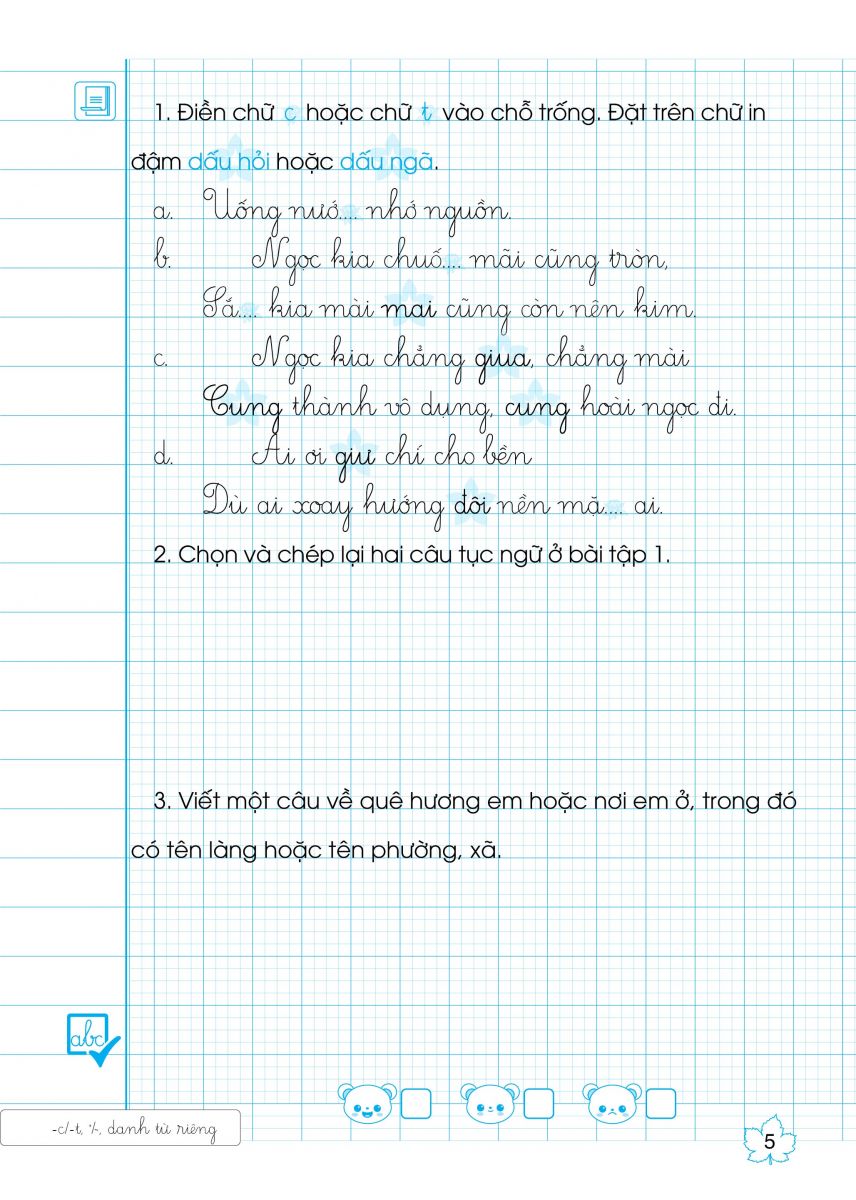 1. Điền chữ c hoặc chữ t vào chỗ trống. Đặt trên chữ in
đậm dấu hỏi hoặc dấu ngã.
a. Uống nướ.... nhớ nguồn.
b. Ngọc kia chuố.... mãi cũng tròn,
Sắ.... kia mài mai cũng còn nên kim.
c. Ngọc kia chẳng giua, chẳng mài
Cung thành vô dụng, cung hoài ngọc đi.
d. Ai ơi giư chí cho bền
Dù ai xoay hướng đôi nền mặ.... ai.
2. Chọn và chép lại hai câu tục ngữ ở bài tập 1.
3. Viết một câu về quê hương em hoặc nơi em ở, trong đó
có tên làng hoặc tên phường, xã.
abc
-c/-t, ̉/~, danh từ riêng
5